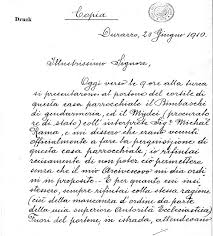 Druck
Copia
Durazzo, 28 Giugno 1910.
Illustrissimo Signore,
Oggi verso le 9 ore alla turca
si presentarono al portone del cortile di
questa casa parrocchiale il Bimbaschi
di gendarmeria, ed il Mudei (procurato
re di stato) coll' interprete Sigr Michael
Rama, e mi dissero che erano venuti
officialmente a fare la perquisizione di
questa casa parrocchiale; io rifiutai
recisamente di non poter ciò permettere
senza che il mio Arcivescovo mi dia ordi
ni in proposito. E per quanto essi insi
stessero, sempre rifiutai colla stessa ragione
(cioè della mancanza d'ordine da parte
della mia superiore Autorità Ecclesiastica)
Fuori del portone in istrada, attendevano